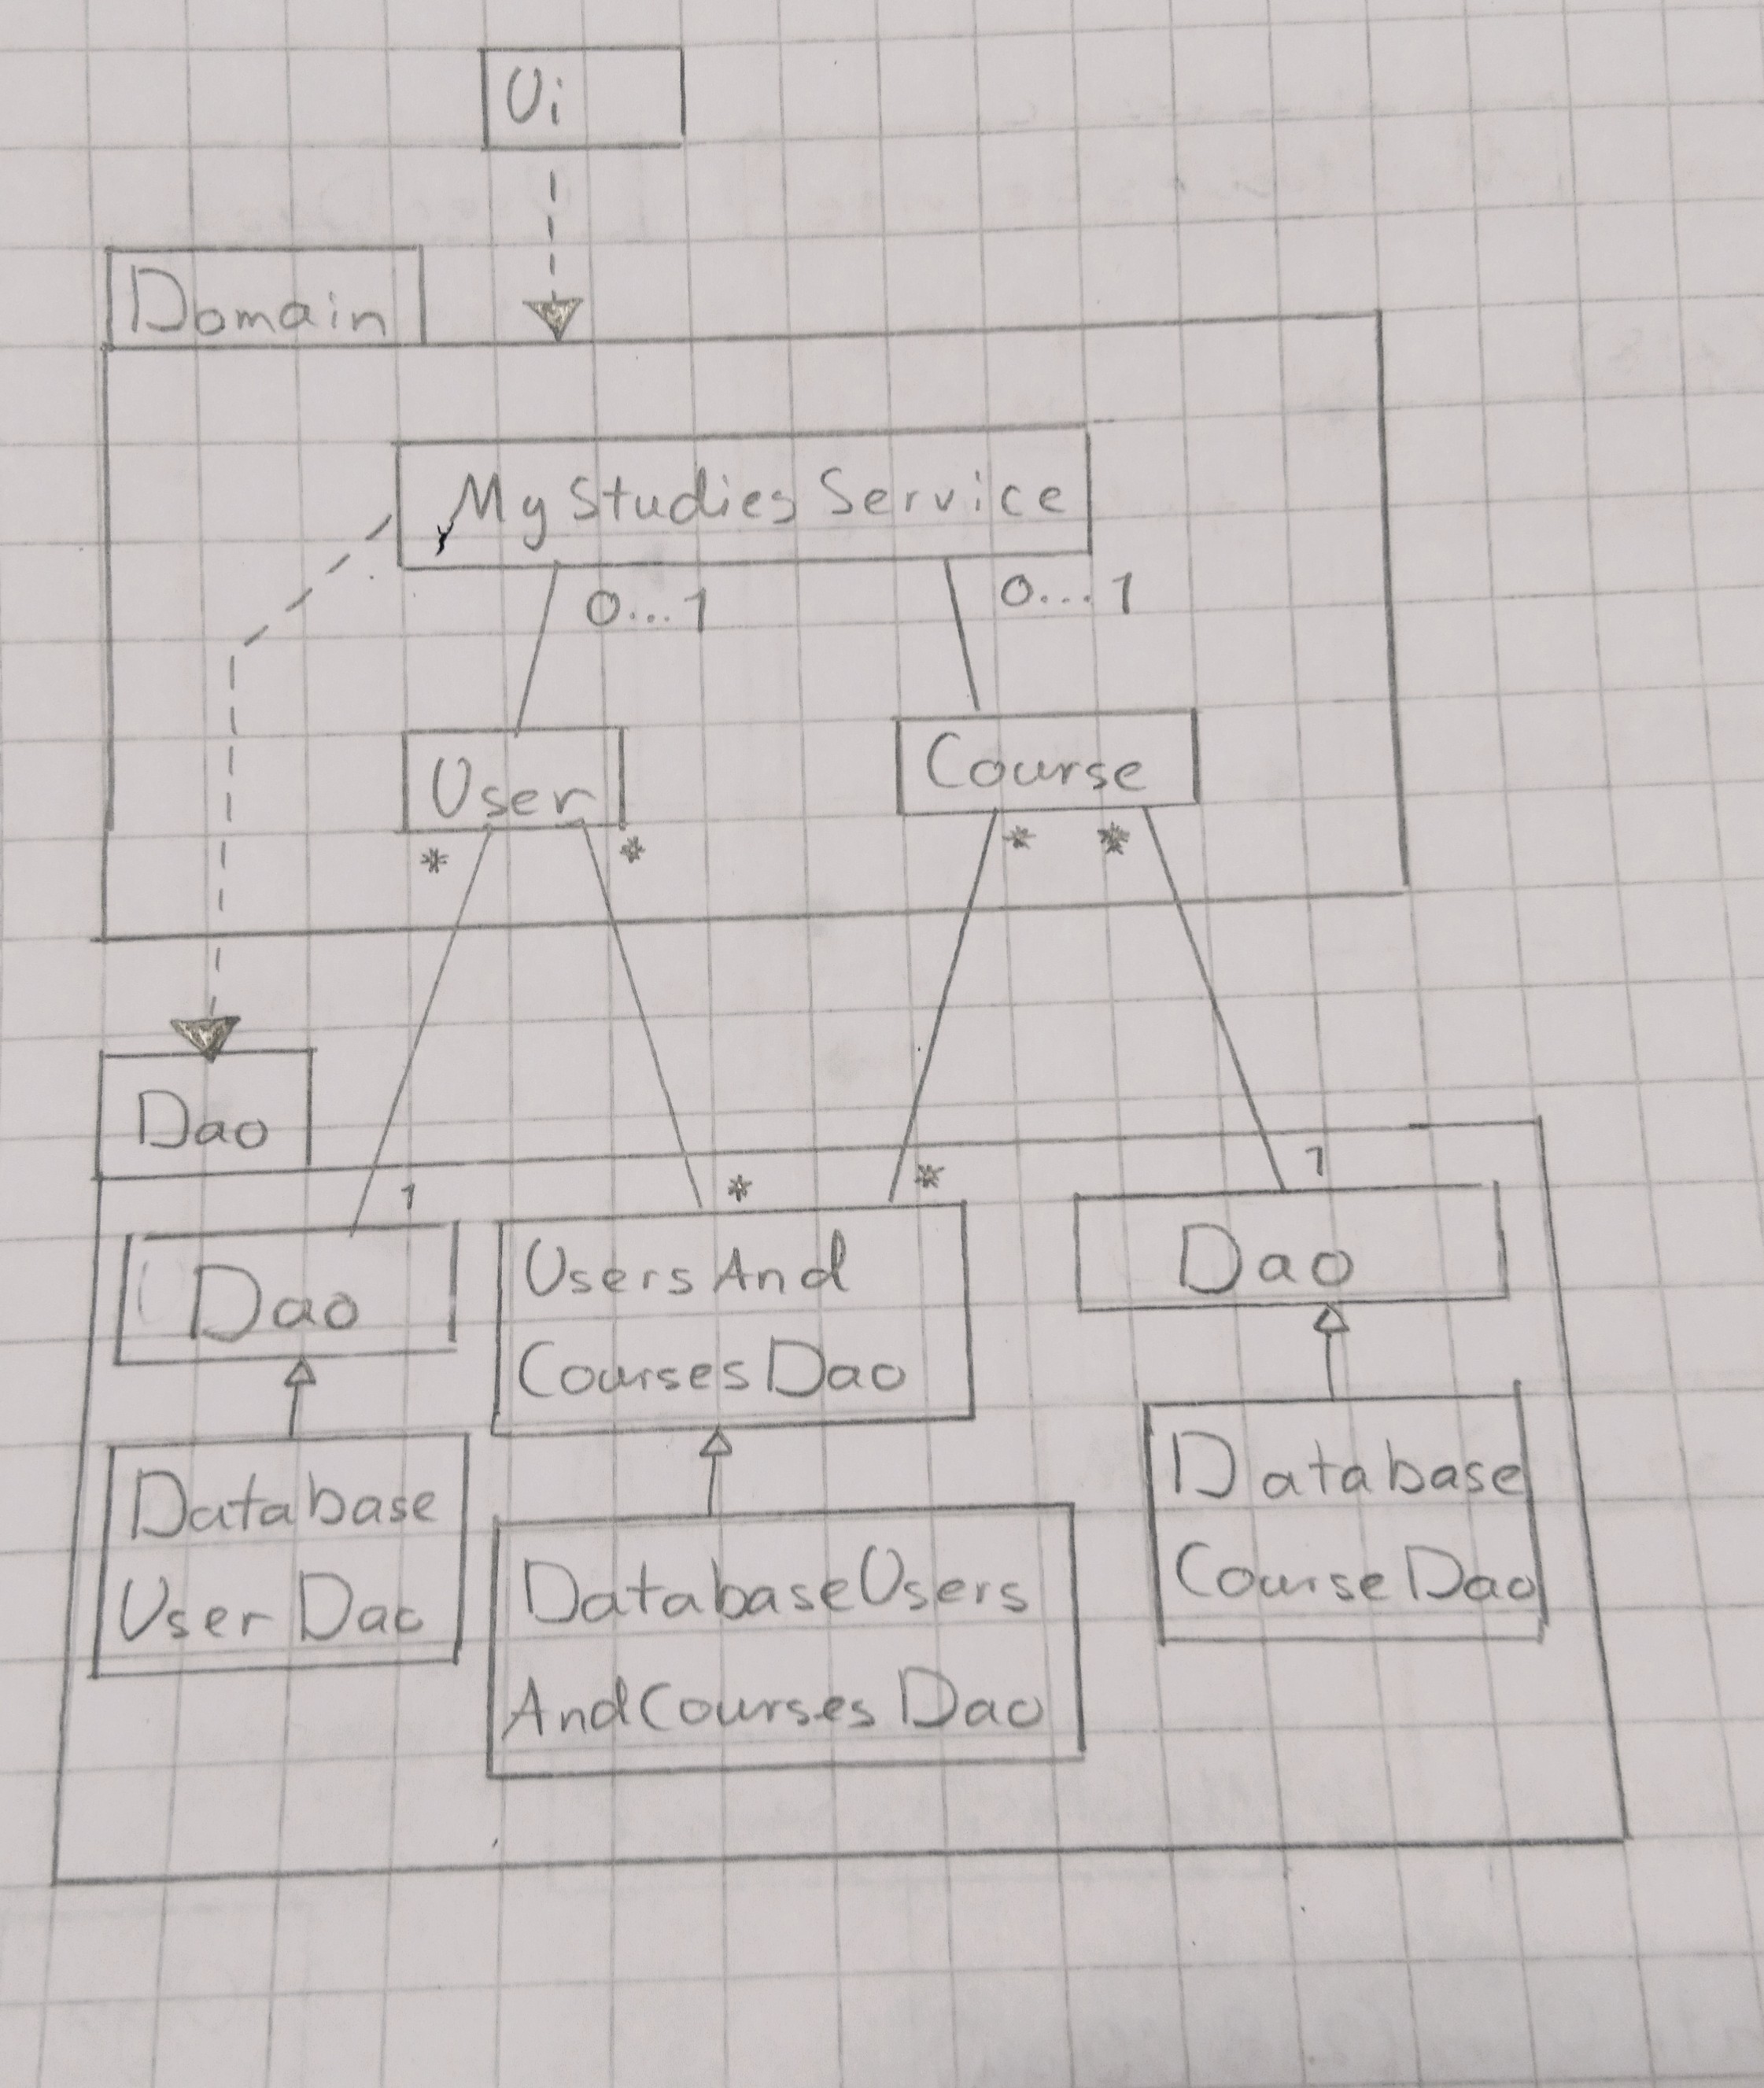 Ui
Domain
MyStudiesService
0...1
0...1
User
Course
*
*
*
*
Dao
1
*
*
1
Dao
UsersAnd
CoursesDao
Dao
Database
UserDao
DatabaseUsers
AndCoursesDao
Database
CourseDao